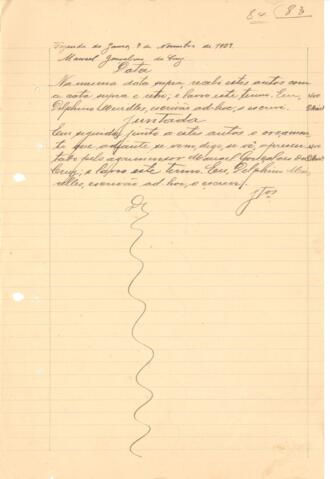 84 83
Fazenda do Jauru, 9 de Novembro de 1929.
Manoel Gonçalves da Cruz
Data
Na mesma data supra recebi estes autos com
a cota supra e retro; e lavro este termo. Eu,
Delphino Meirelles, escrivão ad-hoc, o escrevi.
Juntada
Em seguida junto a estes autos o orçamen-
to que adiante se vem, digo, se vê, apresen-
tado pelo agrimensor Manoel Gonçalves da
Cruz; e lavro este termo. Eu, Delphino Mei-
relles, escrivão ad-hoc, o escrevi.